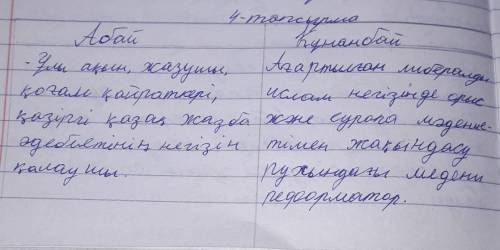 4-тапсырма
Абай
- Ұлы ақын, жазушы,
қоғам қайраткері,
қазіргі қазақ жазба
әдебиетінің негізін
қалаушы.
Құнанбай
Ағартылған либералды
ислам негізінде орыс
және еуропа мәдение-
тімен жақындасу
рухындағы мәдени
реформатор.